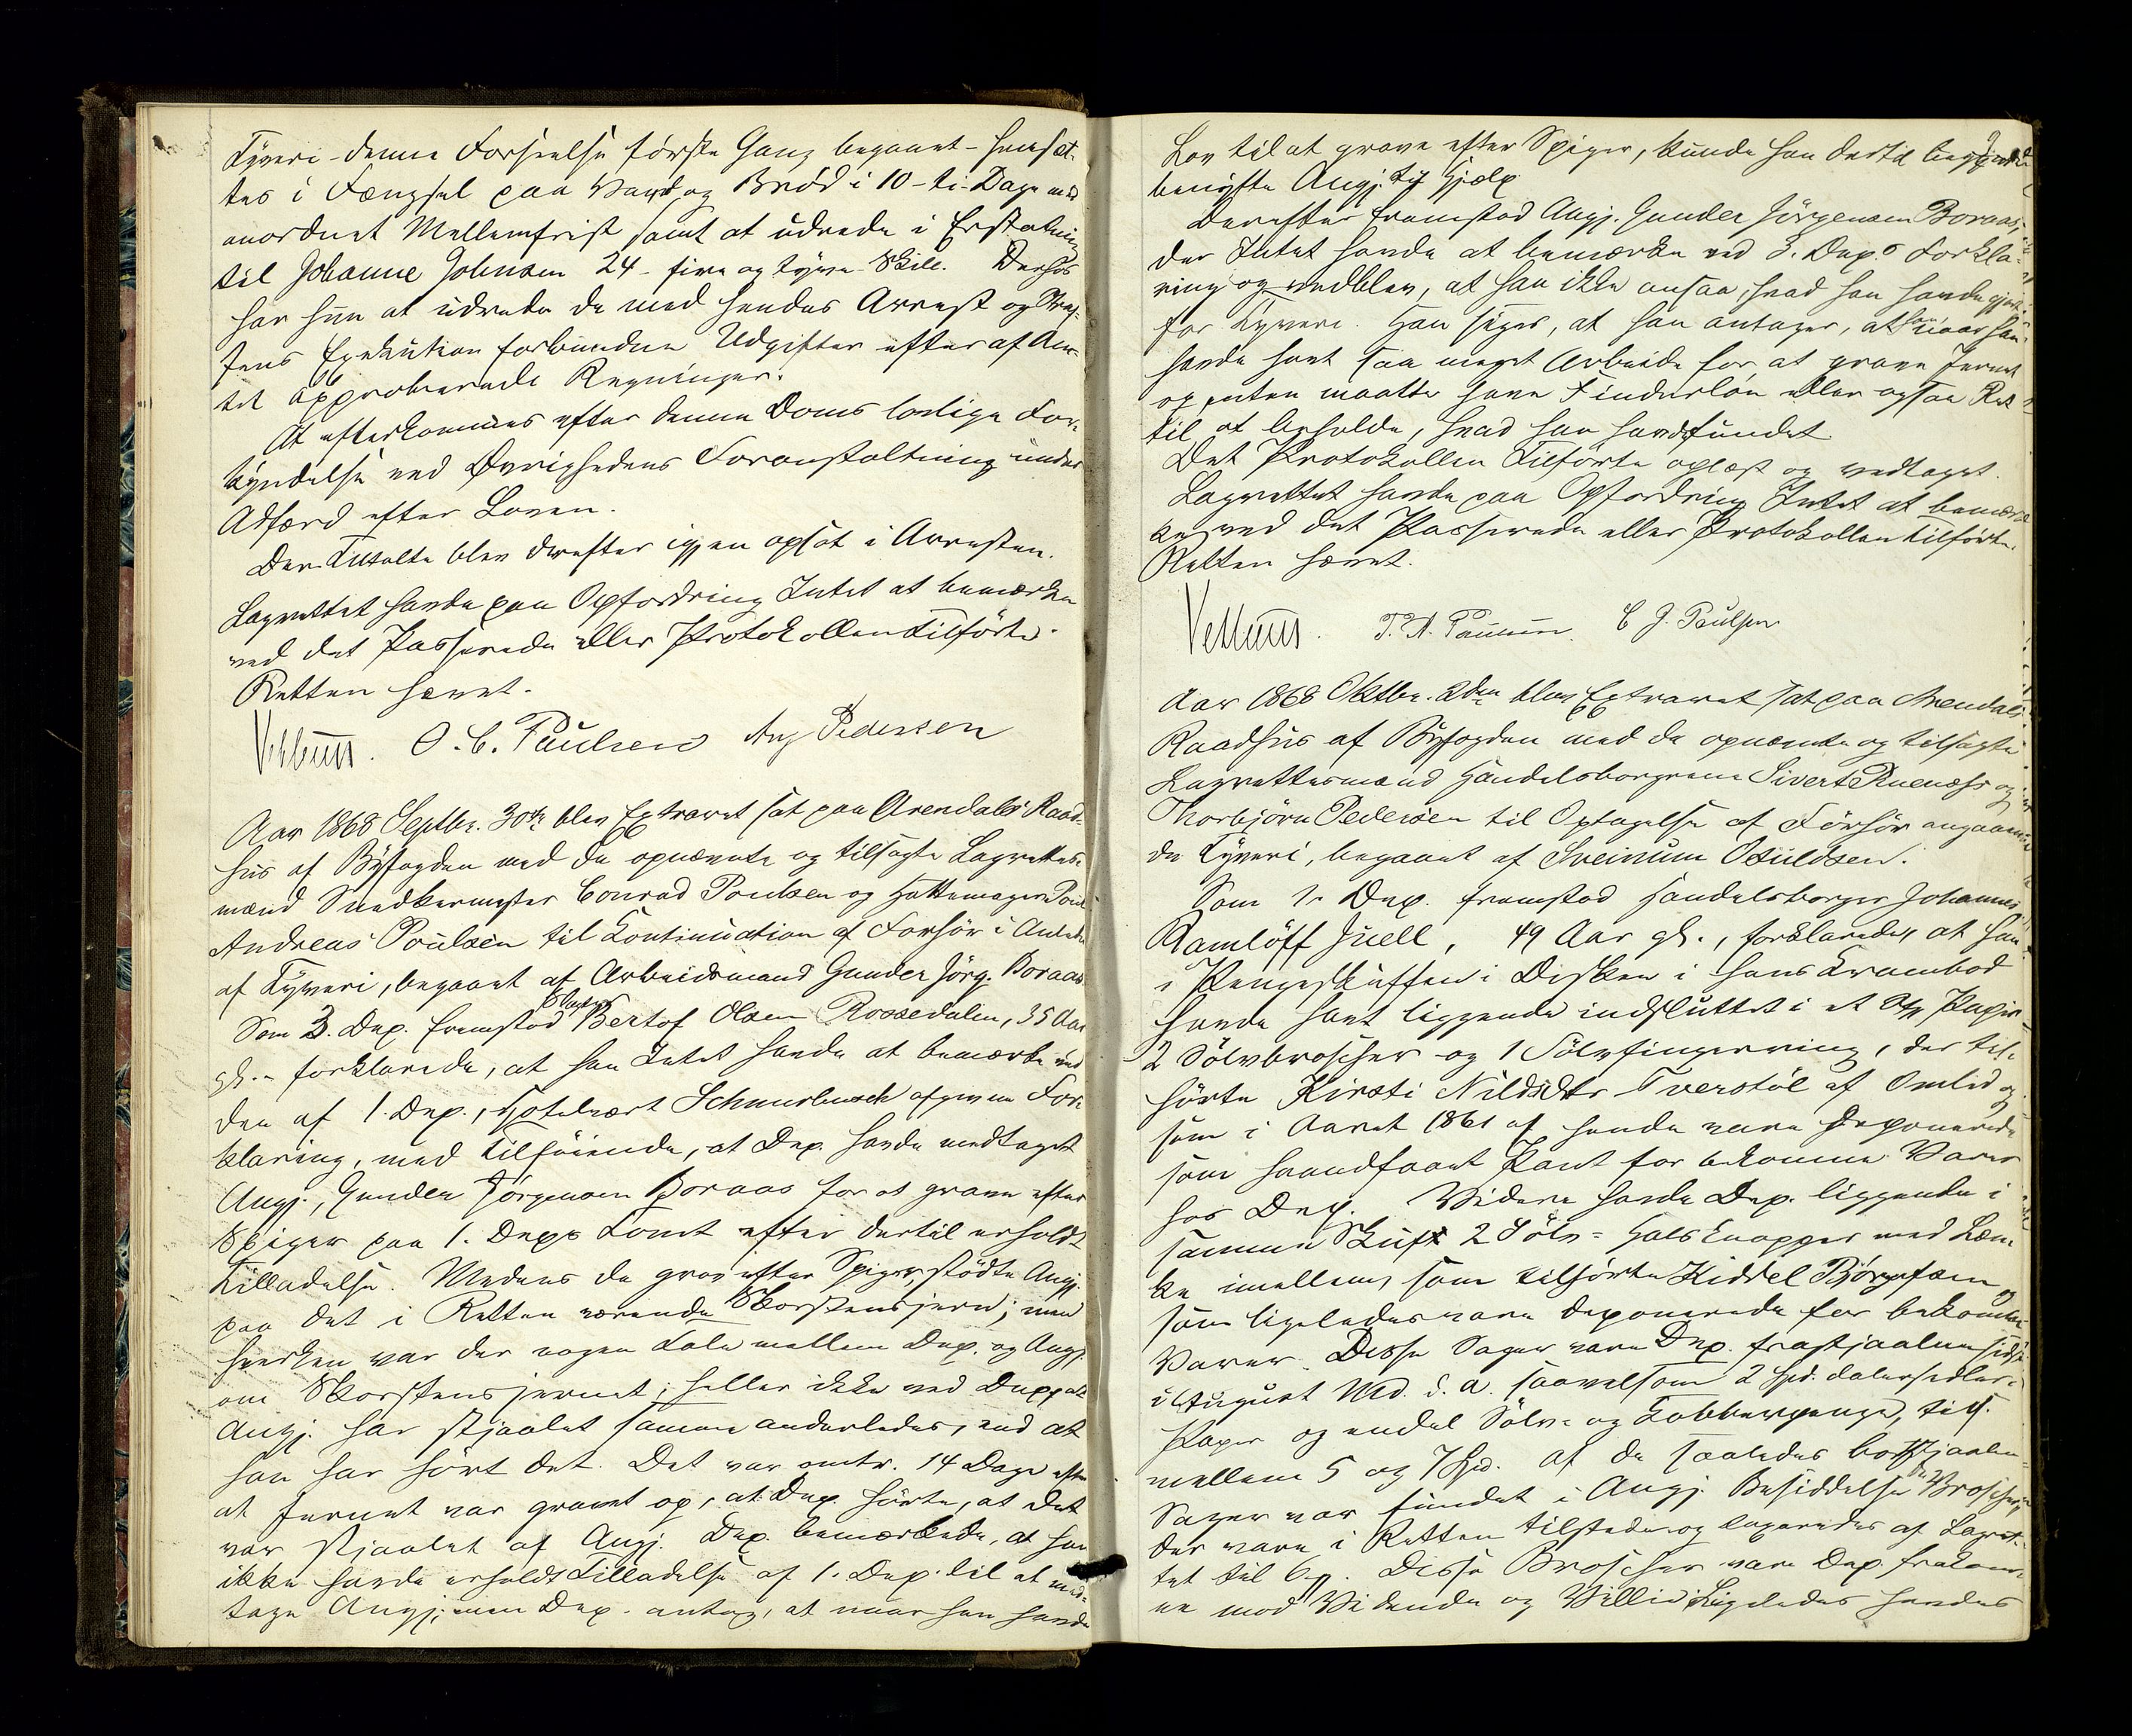 Tyveri - denne Forseelse første Gang begaaet - hensæt-
tes i Fængsel paa Vand og Brød i 10 - ti - Dage med
anordnet Mellemfrist samt at udrede i Erstatning
til Johanne Johnsen 24 - fire og tyve - Skill. Derhos
har hun at udrede de med hendes Arrest og Straf-
fens Exekution forbundne Udgifter efter af Am-
tet approberede Regninger.
At efterkommes efter denne Doms lovlige For-
kyndelse ved Øvrighedens Foranstaltning under
Adfærd efter Loven.
Den Tiltalte blev derefter igjen opsat i Arresten.
Lagrettet havde paa Opfordring Intet at bemærke
ved det Passerede eller Protokollen Tilførte.
Retten hævet.
O. C. Paulsen Aug Pedersen
Aar 1868 Septbr. 30te blev Extraret sat paa Arendals Raad-
hus af Byfogden med de opnævnte og tilsagte Lagrettes-
mænd Snedkermester Conrad Poulsen og Hattemager Poul
Andreas Poulsen til Kontinuation af Forhør i Anledn
af Tyveri, begaaet af Arbeidsmand Gunder Jörg. Boraas.
Som 3. Dep. fremstod Bertof Olsen Rossedalen, 35 Aar
gl. - forklarede, at han Intet havde at bemærke ved
den af 1. Dep., Hotelvært Schnurbusch afgivne For-
klaring, med Tilføiende, at Dep. havde medtaget
Angj., Gunder Jörgensen Boraas for at grave efter
Spiger paa 1. Deps Tomt efter dertil erholdt
Tilladelse. Medens de grov efter Spiger, stødte Angj.
paa det i Retten værende Skorstensjern; men
hverken var der nogen Tale mellem Dep. og Angj.
om Skorstensjernet; heller ikke ved Dep, at
Angj. har stjaalet samme anderledes, end at
han har hørt det. Det var omtr. 14 Dage efter
at Jernet var gravet op, at Dep. hørte, at det
var stjaalet af Angj. Dep. bemærkede, at han
ikke havde erholdt Tilladelse af 1. Dep. til at med-
tage Angj; men Dep. antog, at naar han havde
Lov til at grave efter Spiger, kunde han dertil
benytte Angj. til Hjælp.
Derefter fremstod Angj. Gunder Jörgensen Boraas,
der Intet havde at bemærke ved 3. Dep.s Forkla-
ring og vedblev, at han ikke ansaa, hvad han havde gjort
for Tyveri. Han siger, at han antager, at han, naar han
havde havt saa meget Arbeide for at grave Jernet
op enten maatte have Finderløn eller ogsaa Ret
til at beholde, hvad han havde fundet
Det Protokollen Tilførte oplæst og vedtaget.
Lagrettet havde paa Opfordring Intet at bemær-
ke ved det Passerede eller Protokollen tilførte.
Retten hævet.
P. A. Paulsen. C J. Paulsen
Aar 1868 Oktbr. 2den blev Extraret sat paa Arendals
Raadhus af Byfogden med de opnævnte og tilsagte
Lagrettesmænd Handelsborgerne Sivert Ruenæss og
Thorbjörn Pedersen til Optagelse af Forhör angaaen-
de Tyveri, begaaet af Sveinum Osuldsen.
Som 1. Dep. fremstod Handelsborger Johannes
Ramlöff Juell, 49 Aar gl., forklarede, at han
i Pengeskuffen i Disken i hans Krambod
havde havt liggende indsluttet i et Papir
2 Sölvbroscher og 1 Sölvfingerring, der til-
hørte Kirsti Nildsdtr Tverstöl af Omlid og
som i Aaret 1861 af hende vare deponerede
som haandfaaet Pant for bekomne Varer
hos Dep. Videre havde Dep. liggende i
samme Skuff 2 Sölv-Halsknapper med Læn-
ke imellem, som tilhørte Kiddel
som ligeledes vare deponerede for bekomne
Varer. Disse Sager vare Dep. frastjaalne sidst
i August Md. d. A. saavelsom 2 Spd. dalersedler
Papir og endel Sölv- og Kobberpenge, tils.
mellem 5 og 7 Spd. Af de saaledes bortstjaalne
Sager var fundet i Angj. Besiddelse de Broscher,
der vare i Retten tilstede og taxeredes af Lagret-
tet til 6 . Disse Broscher vare Dep. frakom-
ne mod Vidende og Villie; Ligeledes havdes